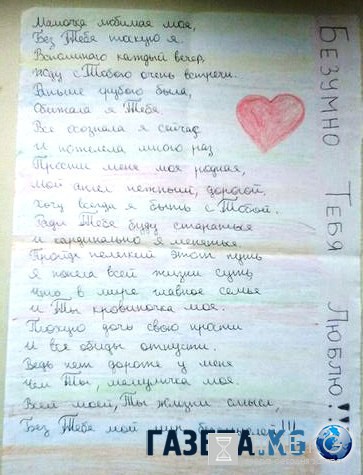 Мамочка любимая моя,
Без Тебя тоскую я.
Вспоминаю каждый вечер,
Жду с Тобою очень встречи.
Раньше грубою была,
Обижала я Тебя.
Все осознала я сейчас
И пожалела много раз
Прости меня моя родная,
Мой ангел нежный, дорогой,
Хочу всегда я быть с Тобой.
Ради Тебе буду стараться
и кардинально я меняться
Пройдя нелегкий этот путь
Я поняла всей жизни суть
Что в мире главное семья
И Ты кровиночка моя.
Плохую дочь свою прости
И все обиды отпусти.
Ведь нет дороже у меня
Чем Ты, мамулечка моя.
Всей моей, Ты жизни смысл,
Без Тебя мой мир
БЕЗУМНО ТЕБЯ ЛЮБЛЮ!!!
ГАЗЕТА.KG